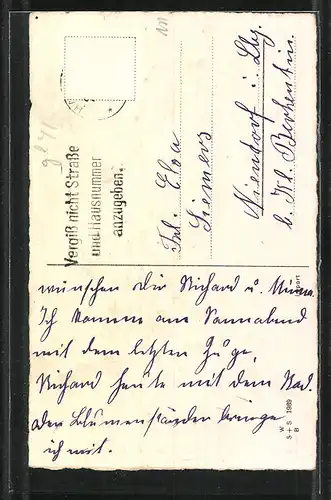 Vergiß nicht Straße
und Hausnummer
anzugeben.
Frl. Elsa
Siemers
Niendorf i. Lbg.
b. Kl. Berkentin.
wünschen dir Richard u. Minna.
Ich komme am Sonnabend
mit dem letzten Zuge,
Richard heute mit dem Rad.
den Blumenständer bringe
ich mit.
W
S+S 1989
B